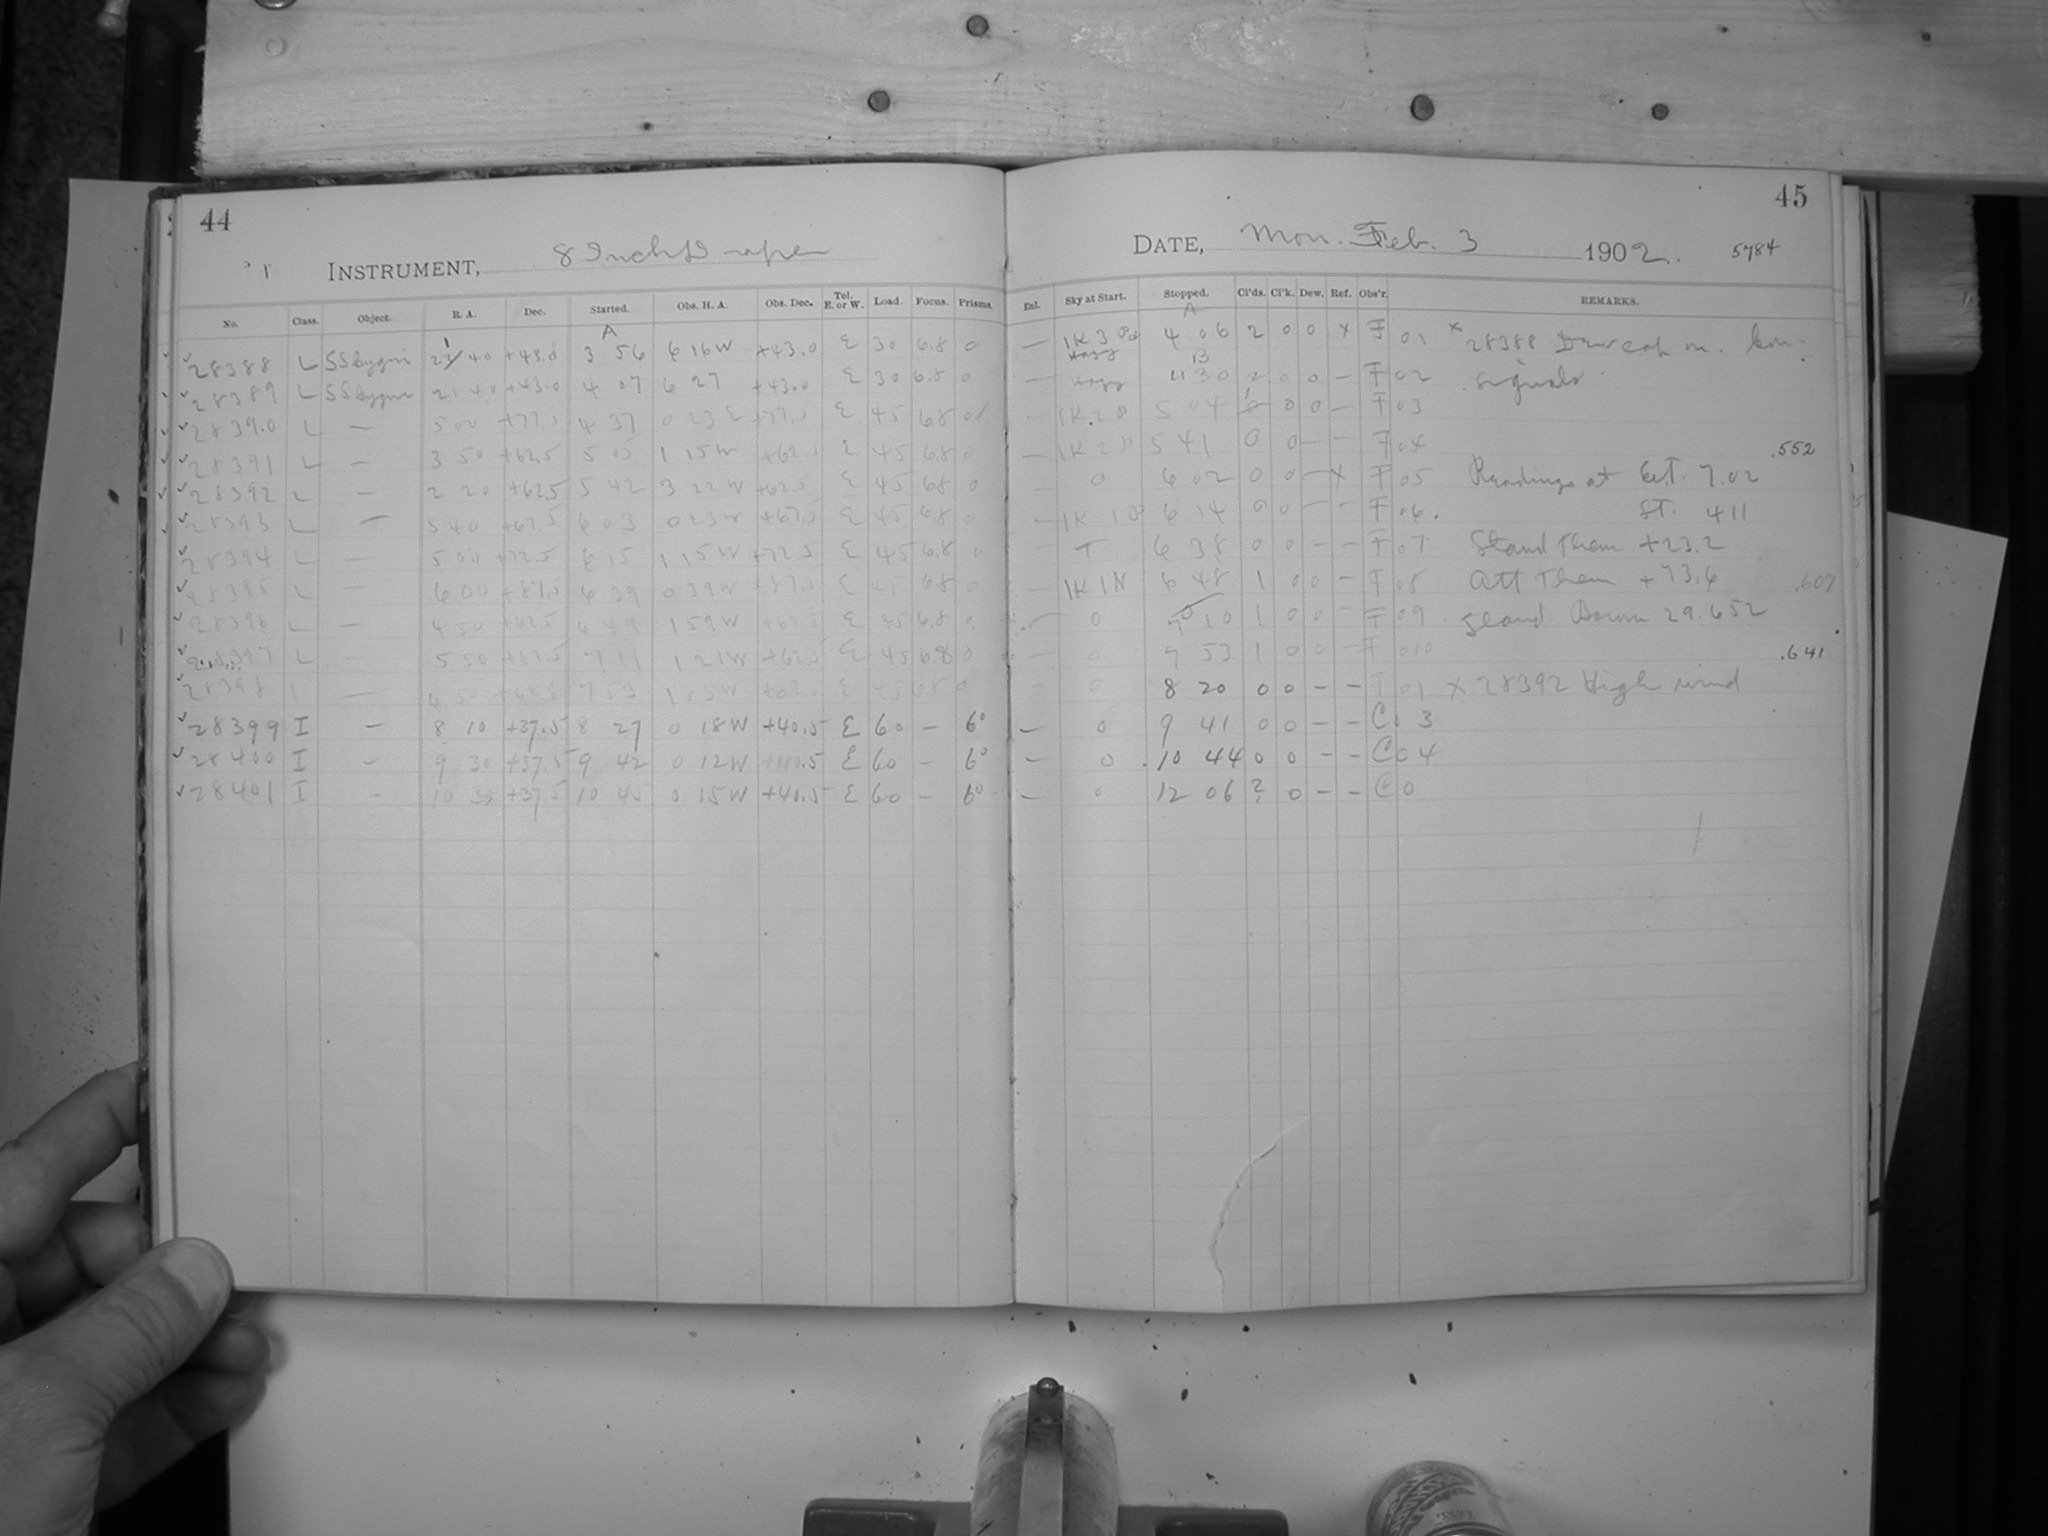 44
INSTRUMENT, 8 Inch Draper
No. Class. Object. R. A. Dec. Started. Obs. H. A. Obs. Dec. Tel. E. or W. Load. Focus. Prisms.
A
28388 L SS Cygni 21 40 +43.0 3 56 6 16W +43.0 E 30 6.8 0
28389 L SS Cygni 21 40 +43.0 4 07 6 27 +43.0 E 30 6.8 0
28390 L — 5 00 +77.5 4 37 0 23 E +77.5 E 45 6.8 0
28391 L — 3 50 +62.5 5 05 1 15W +62.5 E 45 6.8 0
28392 L — 2 20 +62.5 5 42 3 22W +62.5 E 45 6.8 0
28393 L — 5 40 +67.5 6 03 0 23W +67.5 E 45 6.8 0
28394 L — 5 00 +72.5 6 15 1 15W +72.5 E 45 6.8 0
28395 L — 6 00 +87.5 6 39 0 39W +87.5 E 45 6.8 0
28396 L — 4 50 +62.5 6 49 1 59W +62.5 E 45 6.8 0
28397 L — 5 50 +62.5 7 11 1 21W +62.5 E 45 6.8 0
28398 — 7 53 E 45 6.8 0
28399 I — 8 10 +37.5 8 27 0 18W +40.5 E 60 — 6°
28400 I — 9 30 +37.5 9 42 0 12W +40.5 E 60 — 6°
28401 I — 10 30 +37.5 10 45 0 15W +40.5 E 60 — 6°
45
DATE, Mon. Feb. 3 1902. 5784
Enl. Sky at Start. Stopped. Cl'ds. Cl'k. Dew. Ref. Obs'r. REMARKS.
A
— 1K3 Hazy 4 06 2 0 0 x F 01 x 28388 Dewcap on.
— Hazy 4 30 2 0 0 — F 02 signals
— 1K2 5 04 0 0 — F 03
— 1K2 5 41 0 0 — — F 04 .552
— 0 6 02 0 0 — x F 05 Readings at 7.02
— 1K1 6 14 0 0 — — F 06. ST. 411
— 6 38 0 0 — — F 07 Stand Them +23.2
1K1N 6 48 1 0 0 — F 08 Att Them +73.6 .607
0 7 10 1 0 0 — F 09 Stand Barom 29.652
— 0 7 53 1 0 0 — F 010 .641
0 8 20 0 0 — — F 01 x 28392 High wind
— 0 9 41 0 0 — — C 0 3
— 0 10 44 0 0 — — C 0 4
— 0 12 06 2 0 — — C 0